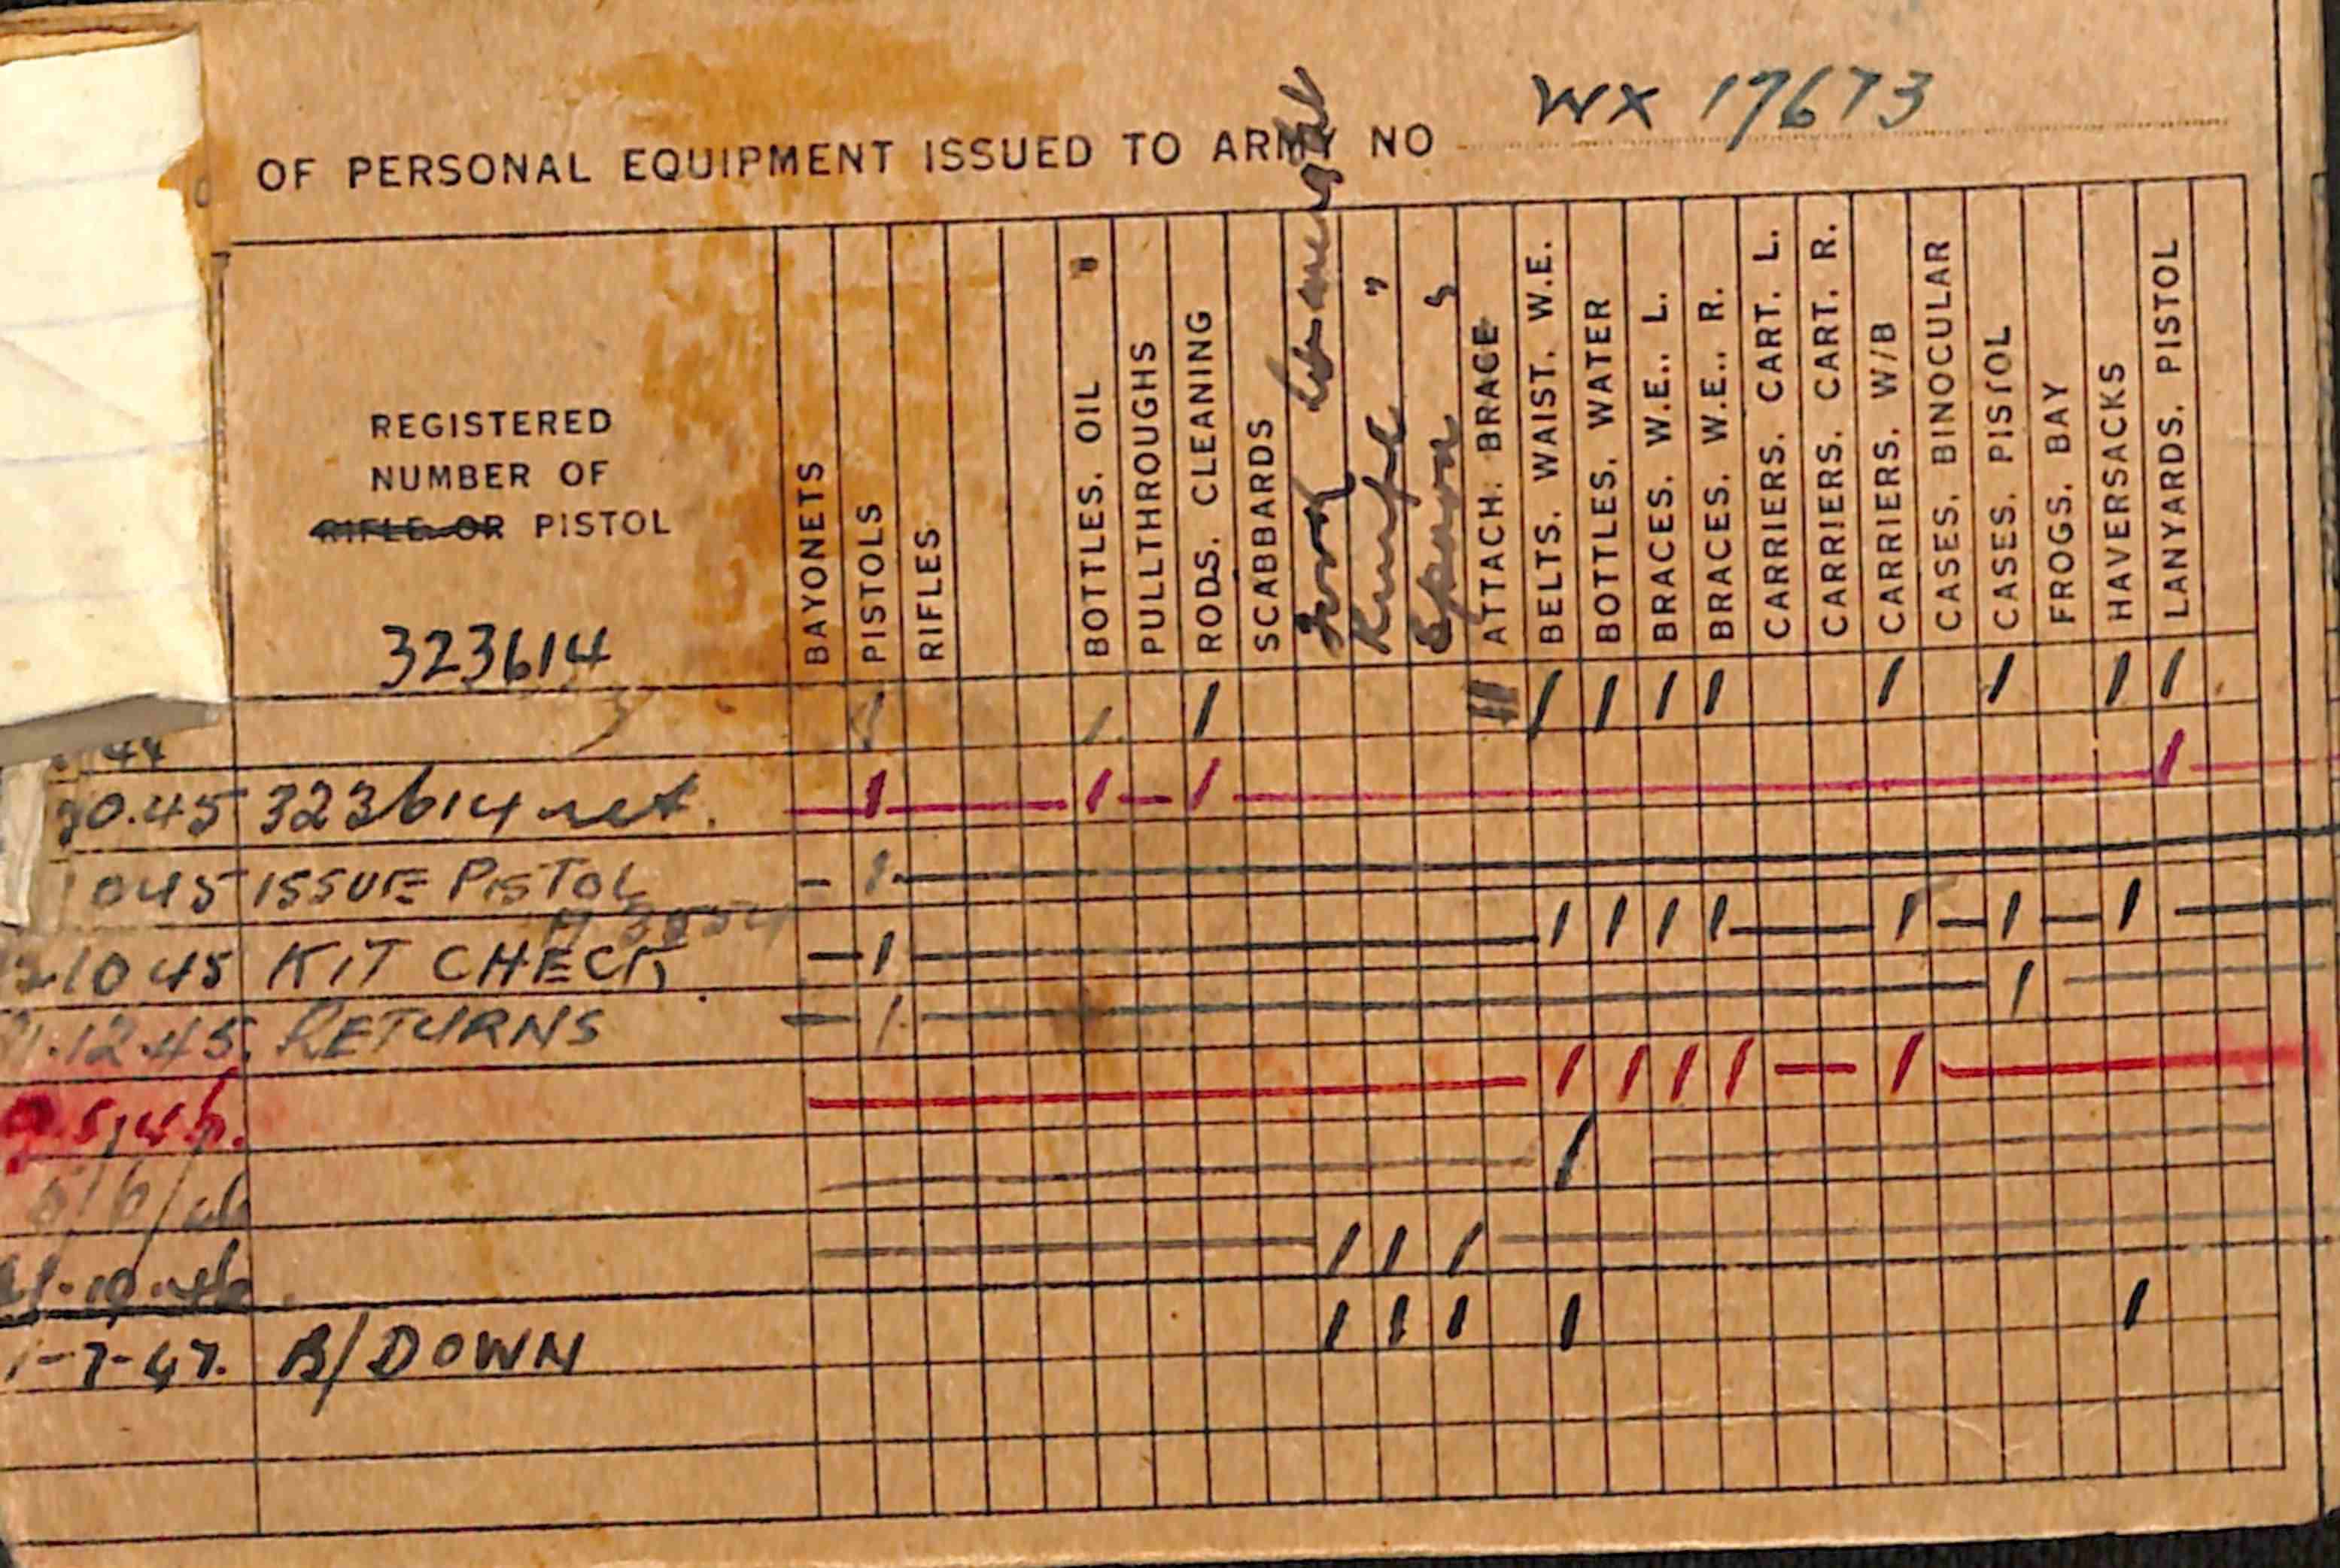 OF PERSONAL EQUIPMENT ISSUED TO ARMY NO WX 17673
REGISTERED
NUMBER OF
RIFLE OR PISTOL
323614
BAYONETS
PISTOLS
RIFLES
BOTTLES. OIL "
PULLTHROUGHS
RODS. CLEANING
SCABBARDS
Fork
Knife "
Spoon "
ATTACH: BRACE
BELTS. WAIST. W.E.
BOTTLES. WATER
BRACES. W.E.. L.
BRACES. W.E.. R.
CARRIERS. CART. L.
CARRIERS. CART. R.
CARRIERS. W/B
CASES. BINOCULAR
CASES. PISTOL
FROGS. BAY
HAVERSACKS
LANYARDS. PISTOL
44 1 1 1 11 1 1 1 1 1 1 1 1
0.45 323614 ret. 1 1 1 1
045 ISSUE PISTOL 1
10 45 KIT CHECK 1 1 1 1 1 1 1 1
.12.45. RETURNS 1 1
5/46. 1 1 1 1 1
5/6/46 1
10-46. 1 1 1
1-7-47. B/DOWN 1 1 1 1 1